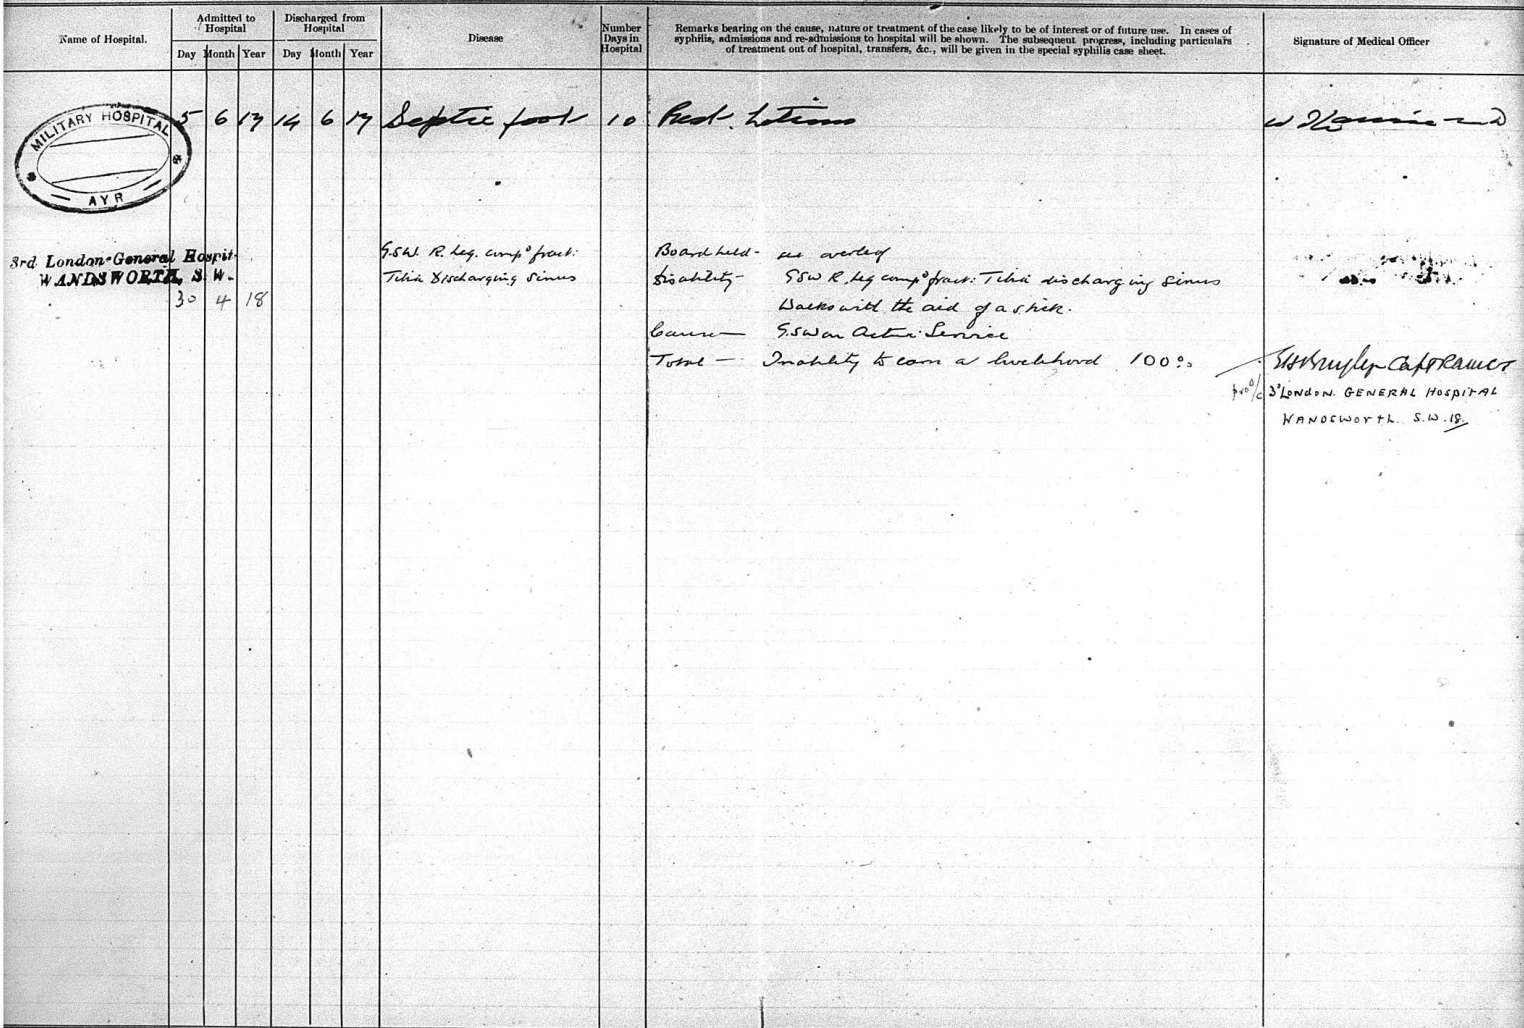 Name of Hospital.
Admitted to Hospital
Discharged from Hospital
Day Month Year Day Month Year
Disease
Number Days in Hospital
Remarks bearing on the cause, nature or treatment of the case likely to be of interest or of future use. In cases of
syphilis, admissions and re-admissions to hospital will be shown. The subsequent progress, including particulars
of treatment out of hospital, transfers, &c., will be given in the special syphilis case sheet.
Signature of Medical Officer
MILITARY HOSPITAL
AYR
5 6 17 14 6 17 Septic foot 10 Rest. Lotions
3rd London General Hospit
WANDSWORTH, S.W.
30 4 18
G.S.W. R. Leg. compd fract:
Tibia Discharging Sinus
Board held - as overleaf
Disability - GSW R. Leg compd fract: Tibia discharging sinus
Walks with the aid of a stick.
Cause - G.S.W on Active Service
Total - Inability to earn a livelihood 100%
Capt RAMCT
3d LONDON. GENERAL HOSPITAL
WANDSWORTH. S.W.18.